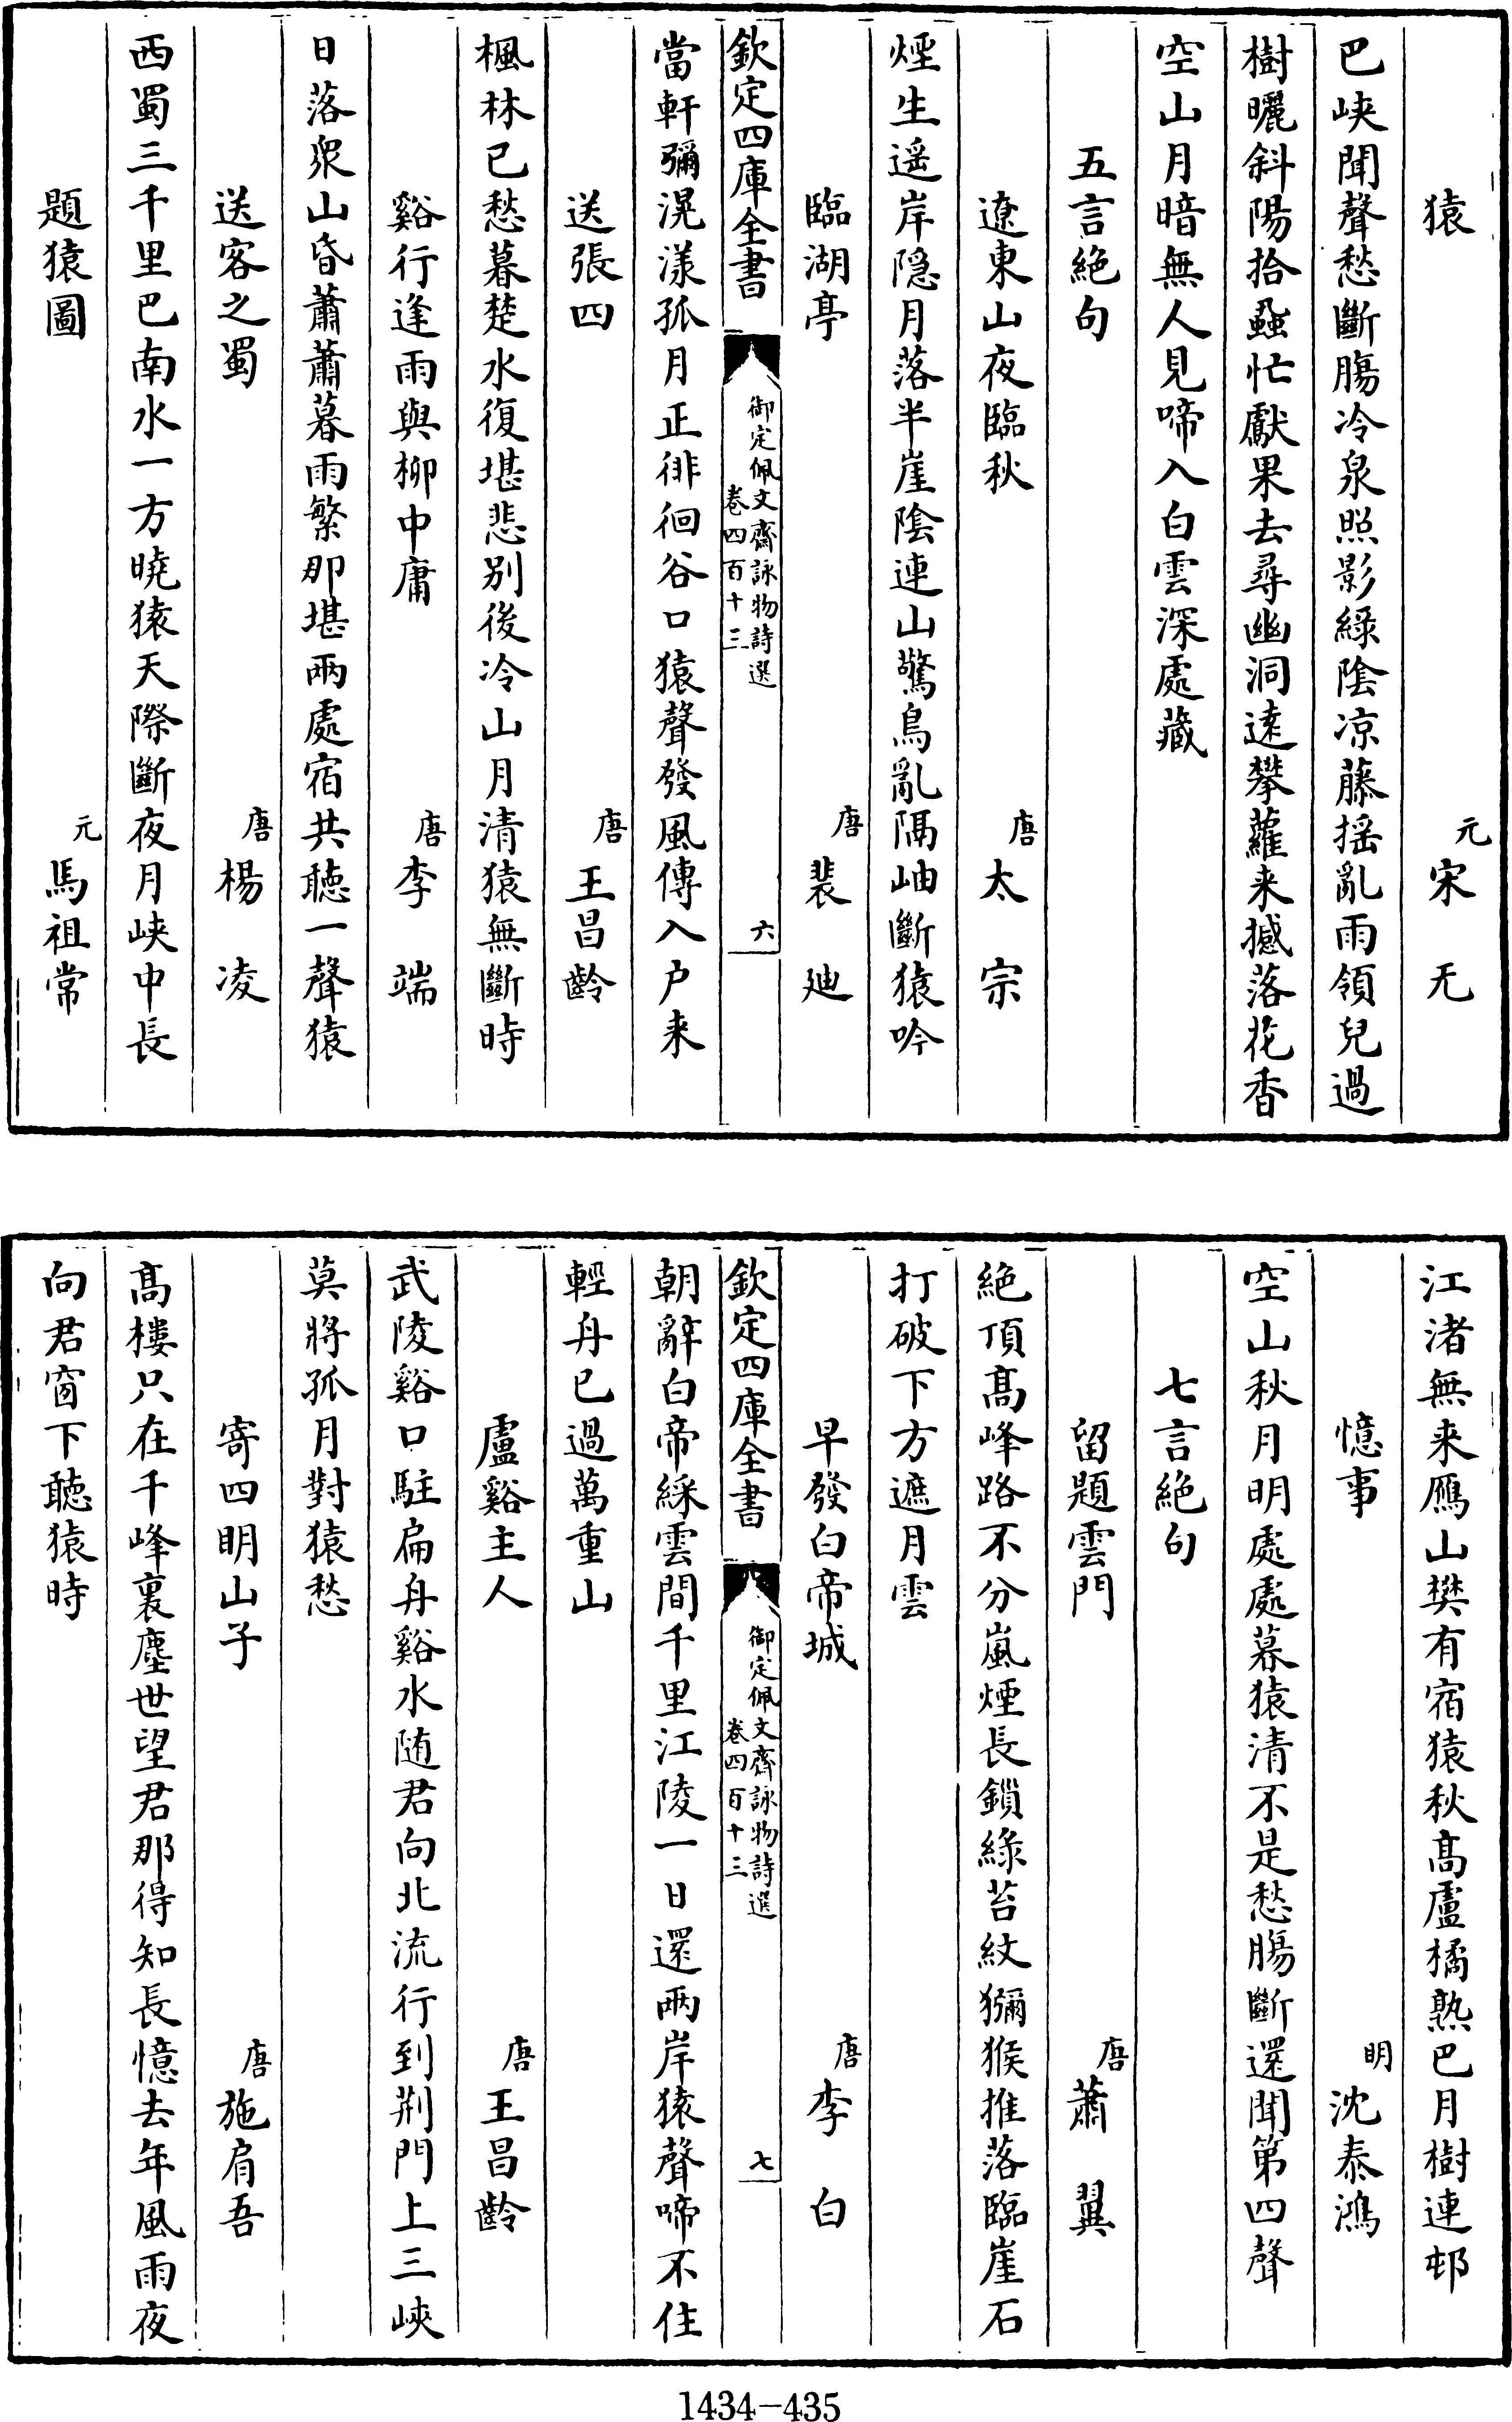 猿　元宋　无
巴峡聞聲愁斷腸冷泉照影綠陰凉藤揺亂雨領兒過
樹曬斜陽拾蝨忙獻果去尋幽洞逺攀蘿来撼落花香
空山月暗無人見啼入白雲深處藏
五言絶句
遼東山夜臨秋　唐太　宗
煙生遥岸隠月落半崖陰連山驚鳥亂隔岫斷猿吟
臨湖亭　唐裴　廸
欽定四庫全書　御定佩文齋詠物詩選　卷四百十三　六
當軒彌滉漾孤月正徘徊谷口猿聲發風傳入户来
送張四　唐王昌齡
楓林已愁暮楚水復堪悲别後冷山月清猿無斷時
谿行逢雨與柳中庸　唐李　端
日落衆山昏蕭蕭暮雨繁那堪兩處宿共聴一聲猿
送客之蜀　唐楊　凌
西蜀三千里巴南水一方曉猿天際斷夜月峡中長
題猿圖　元馬祖常
江渚無来鴈山樊有宿猿秋髙盧橘熟巴月樹連邨
憶事　明沈泰鴻
空山秋月明處處暮猿清不是愁腸斷還聞第四聲
七言絶句
留題雲門　唐蕭　翼
絶頂髙峰路不分嵐煙長鎖綠苔紋獼猴推落臨崖石
打破下方遮月雲
早發白帝城　唐李　白
欽定四庫全書　御定佩文齋詠物詩選　卷四百十三　七
朝辭白帝綵雲間千里江陵一日還兩岸猿聲啼不住
輕舟已過萬重山
盧谿主人　唐王昌齡
武陵谿口駐扁舟谿水随君向北流行到荆門上三峽
莫將孤月對猿愁
寄四明山子　唐施肩吾
髙樓只在千峰裏塵世望君那得知長憶去年風雨夜
向君窗下聽猿時
1434-435